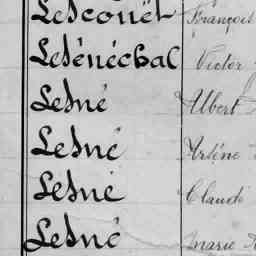 Lesconët François
Lesénéchal Victor
Lesné Albert
Lesné Arsène
Lesné Claude
Lesné Marie